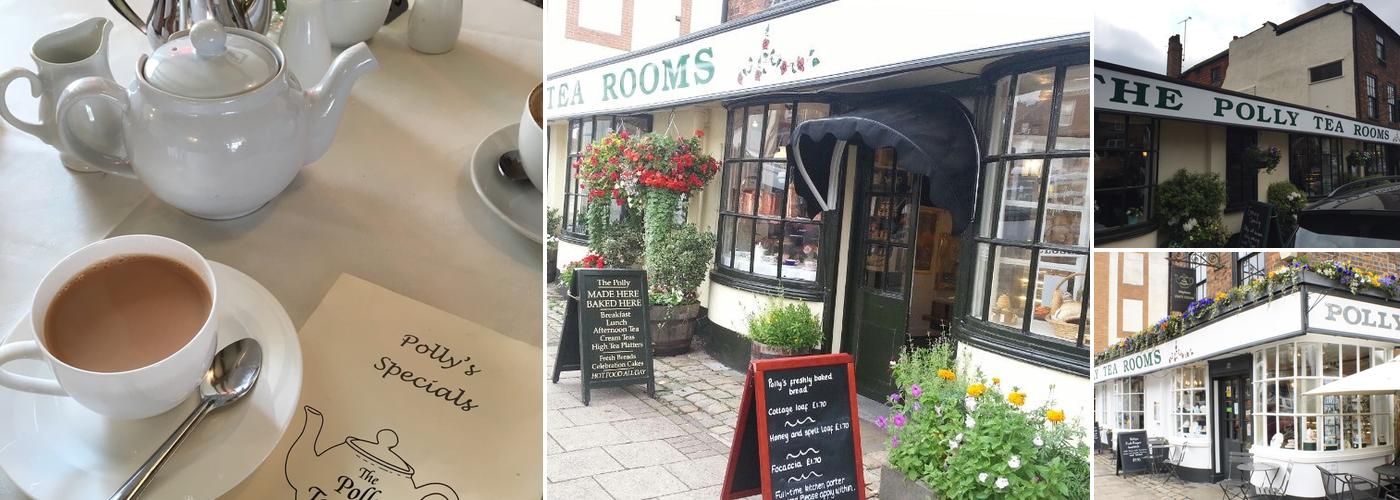 Polly's
Specials
The
Poll
TEA ROOMS
The Polly
MADE HERE
BAKED HERE
Breakfast
Lunch
Afternoon Tea
Cream Teas
High Tea Platters
Fresh Breads
Celebration Cakes
HOT FOOD ALL DAY
Polly's freshly baked
bread
Cottage loaf £1.70
Honey and spelt loaf £1.70
Focaccia £1.70
Full-time kitchen porter
Please apply within.
THE POLLY TEA ROOMS
Y TEA ROOMS
POLLY